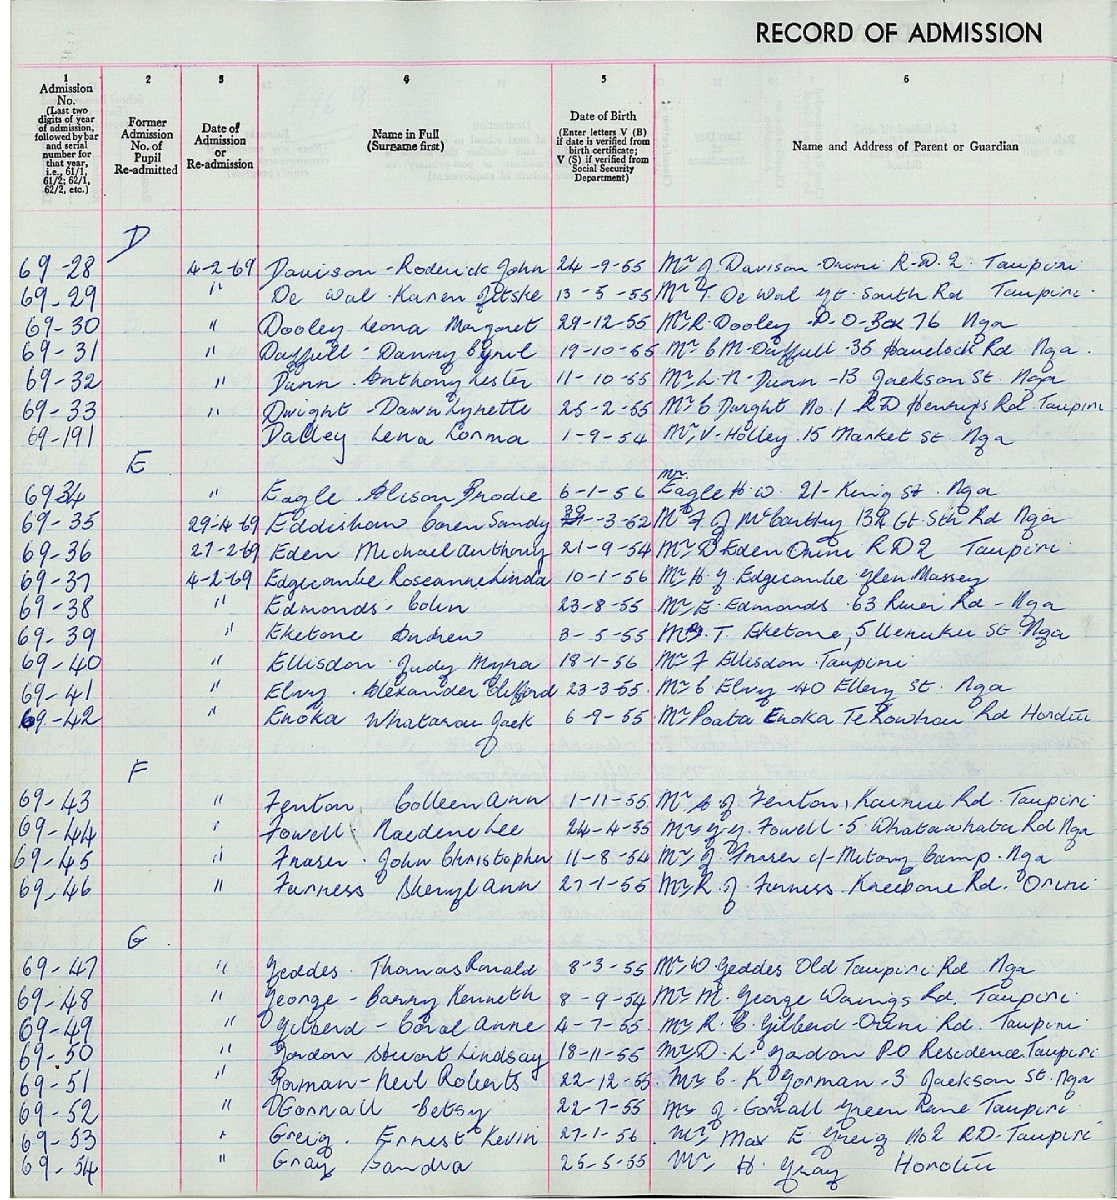 RECORD OF ADMISSION
1 2 3 4 5 6
Admission No. (Last two digits of year of admission, followed by bar and serial number for that year, i.e., 61/1, 61/2; 62/1, 62/2, etc.)
Former Admission No. of Pupil Re-admitted
Date of Admission or Re-admission
Name in Full (Surname first)
Date of Birth (Enter letters V (B) if date is verified from birth certificate; V (S) if verified from Social Security Department)
Name and Address of Parent or Guardian
D
69-28 4-2-69 Davison - Roderick John 24-9-55 Mr J Davison Orini R.D.2. Taupiri
69-29 " De Wal Karen Jitske 13-5-55 Mr T. De Wal Gt. South Rd Taupiri
69-30 " Dooley Leona Margaret 29-12-55 Mr R. Dooley P.O. Box 76 Nga
69-31 " Duffull - Danny Cyril 19-10-55 Mr C M Duffull 35 Havelock Rd Nga.
69-32 " Dunn Anthony Lester 11-10-55 Mr L. N. Dunn - 13 Jackson St. Nga
69-33 " Dwight - Dawn Lynette 25-2-55 Mr C Dwight No. 1 RD Henrys Rd Taupiri
69-191 Dalley Lena Lorma 1-9-54 Mr V. Holley 15 Market St. Nga
E
69-34 " Eagle Alison Brodie 6-1-56 Mr. Eagle H. W. 21 - King St. Nga
69-35 29-4-69 Eddishaw Caren Sandy 30-3-52 Mr F J McCarthy 132 Gt. Sth Rd Nga
69-36 27-2-69 Eden Michael Anthony 21-9-54 Mr D Eden Orini RD2 Taupiri
69-37 4-2-69 Edgecombe Roseanne Linda 10-1-56 Mr H. G. Edgecombe Glen Massey
69-38 " Edmonds - Colin 23-8-55 Mr E. Edmonds 63 River Rd - Nga
69-39 " Eketone Andrew 8-5-55 T. Eketone, 5 Uenuku St. Nga
69-40 " Ellisdon Judy Myra 18-1-56 Mr F Ellisdon Taupiri
69-41 " Elvy Alexander Clifford 23-3-55 Mr C Elvy 40 Ellery St. Nga
69-42 " Enoka Whatarau Jack 6-9-55 Mr Poata Enoka Te Kowhai Rd Horotiu
F
69-43 " Fenton, Colleen Ann 1-11-55 Mr Fenton, Rd. Taupiri
69-44 " Fowell Raedene Lee 24-4-55 Mr Fowell - 5 Whatawhata Rd Nga
69-45 " Fraser John Christopher 11-8-54 Mr J. Fraser c/- Camp. Nga
69-46 " Furness Sheryl Ann 27-1-55 Mr R. J. Furness Kneebone Rd. Orini
G
69-47 " Geddes Thomas Ronald 8-3-55 Mr W Geddes Old Taupiri Rd Nga
69-48 " George - Barry Kenneth 8-9-54 Mr M. George Warings Rd. Taupiri
69-49 " Gilberd - Coral Anne 4-7-55 Mr R. C. Gilberd Orini Rd. Taupiri
69-50 " Gordon Stuart Lindsay 18-11-55 Mr D. L. Gordon PO Residence Taupiri
69-51 " Gorman - Neil Roberts 22-12-55 Mr C. K Gorman - 3 Jackson St. Nga
69-52 " Gornall Betsy 22-7-55 Mr J. Gornall Green Lane Taupiri
69-53 " Greig Ernest Kevin 27-1-56 Mr Max E Greig No2 RD Taupiri
69-54 " Gray Sandra 25-5-55 Mr H. Gray Horotiu